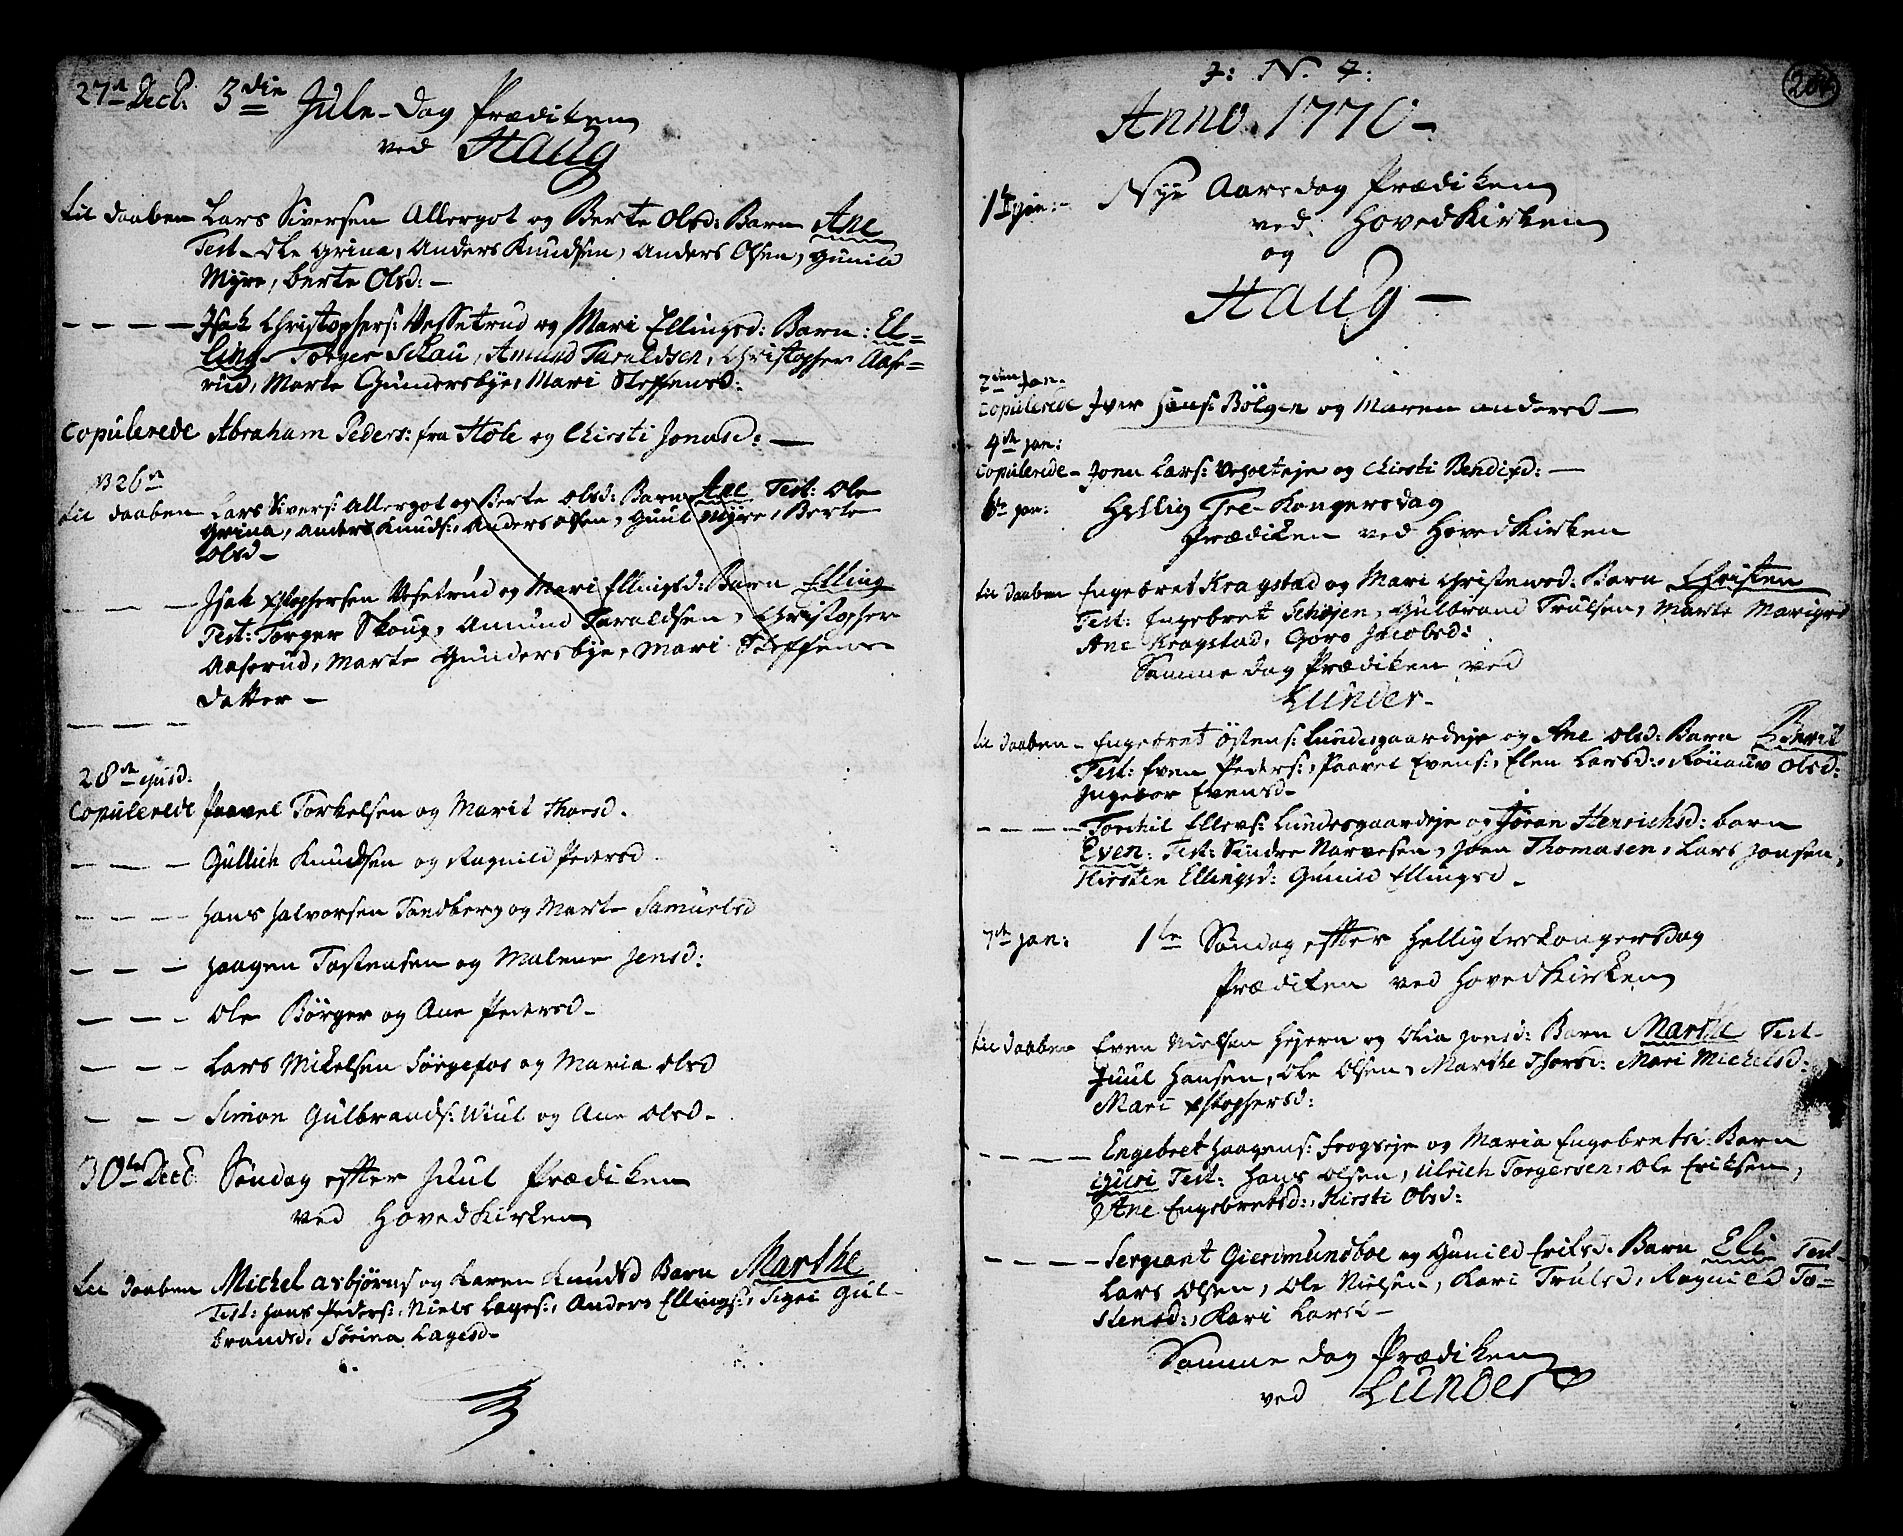 27d Decb: 3die Jule-Dag Prædiken
ved Haug
til daaben Lars Siversen Allergot og Berte Olsd: Barn Ane
Test- Ole Grina, Anders Knudsen, Anders Olsen, Gunild
Myre, berte Olsd: -
- - - - Isak Christophers: Vessetrud og Mari Ellingsd: Barn: El=
ling Torger Skau, Amund Taraldsen, Christopher Aase=
rud, Marte Gundersbye, Mari Steffensd:
Copulerede Abraham Peders: fra Hole og Chirsti Jonasd: -
NB 26d
til daaben Lars Sivers: Allergot og Berte Olsd: Barn Ane Test: Ole
Grina, Anders Knuds:, Anders Olsen, Guul Myre, Berte
Olsd-
- - - Isak Xstophersen Vesetrud og Mari Ellingsd: Barn Elling
Test: Torger Skoug, Amund Taraldsen, Christopher
Aaserud, Marte Gundersbye, Mari Steffens-
datter -
- - -
28d ejusd:
Copulerede Paavel Torkelsen og Marit Thorsd.
- - - Gullich Knudsen og Ragnild Pedersd
- - - Hans Halvorsen Tandberg og Marte Samuelsd
- - - Haagen Tostensen og Malene Jensd:
- - - Ole Börger og Ane Pedersd-
- - - Lars Mikelsen Sörgefos og Maria Olsd
- - - Simon Gulbrands: Wiul og Ane Olsd-
30te Decb Söndag efter Juul Prædiken
ved Hoved Kirken
til daaben Michel Asbjørns og Karen Knudsd Barn Marthe
Test: Hans Peders:, Niels Lages:, Anders Ellings:, Sigri Gul-
brandsd, Sörina Lagesd-
J: N. J:
204
Anno. 1770-
1te Jan:- Nye Aarsdag Prædiken
ved Hoved Kirken
og
Haug -
2den Jan.
Copulerede Iver Hans: Bölgen og Maren Andersd -
4de Jan:
Copulerede- Joen Lars: og Chirsti Bendixd: -
6te Jan: Hellig Tre-Kongersdag
Prædiken ved Hoved Kirken
til daaben Engebret Kragstad og Mari Christensd: Barn Christen
Test: Ingebret Gulbrand Trulsen, Marte
Ane Kragstad, Goro Jacobsd:
Samme dag Prædiken ved
Lunder-
til daaben- Engebret Östens: Lundesgaardeje og Ane Olsd: Barn Berit
Test: Even Peders:, Paavel Evens:, Elen Larsd:, Rönnauv Olsd:
Ingebor Evensd-
- - - - Torchil Ellevs: Lundesgaardeje og Jöran Henrichsd: barn
Even: Test: Sindre Narvesen, Joen Thomasen, Lars Jonsen,
Kirsten Ellingsd: Gunild Ellingsd-
7de Jan: 1te Söndag efter Helligtrekongersdag
Prædiken ved Hoved Kirken
til daaben Even Nielsen Hjern og Olia Jonsd: Barn Marthe Test-
Juul Hansen, Ole Olsen, Marthe Thorsd: Mari Michelsd:
Mari Xstophersd:
- - - - Engebret Haagens: Frogseje og Maria Engebretsd: Barn
Guri Test: Hans Olsen, Ulrich Torgersen, Ole Eriksen,
Ane Engebretsd:, Kirsti Olsd:
- - - - Sergiant Gierdmundboe og Gunild Eriksd: Barn Eli Test-
Lars Olsen, Ole Nielsen, Kari Trulsd, Ragnild To=
stensd:, Kari Larsd-
Samme dag Prædiken
ved Lunder